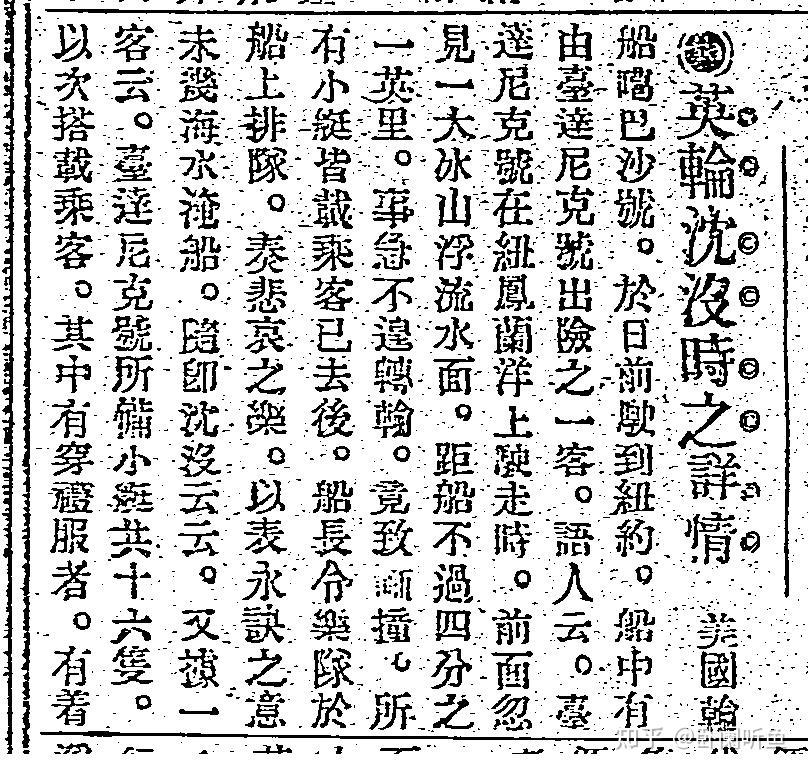 英輪沈沒時之詳情 美國輪
船噶巴沙號。於日前駛到紐約。船中有
由臺達尼克號出險之一客。語人云。臺
達尼克號在紐鳳蘭洋上駛走時。前面忽
見一大冰山浮流水面。距船不過四分之
一英里。事急不遑轉輪。竟致衝撞。所
有小艇皆載乘客已去後。船長令樂隊於
船上排隊。奏悲哀之樂。以表永訣之意
未幾海水淹船。隨即沈沒云云。又據一
客云。臺達尼克號所備小艇共十六隻。
以次搭載乘客。其中有穿禮服者。有着
知乎 @卧闲听鱼